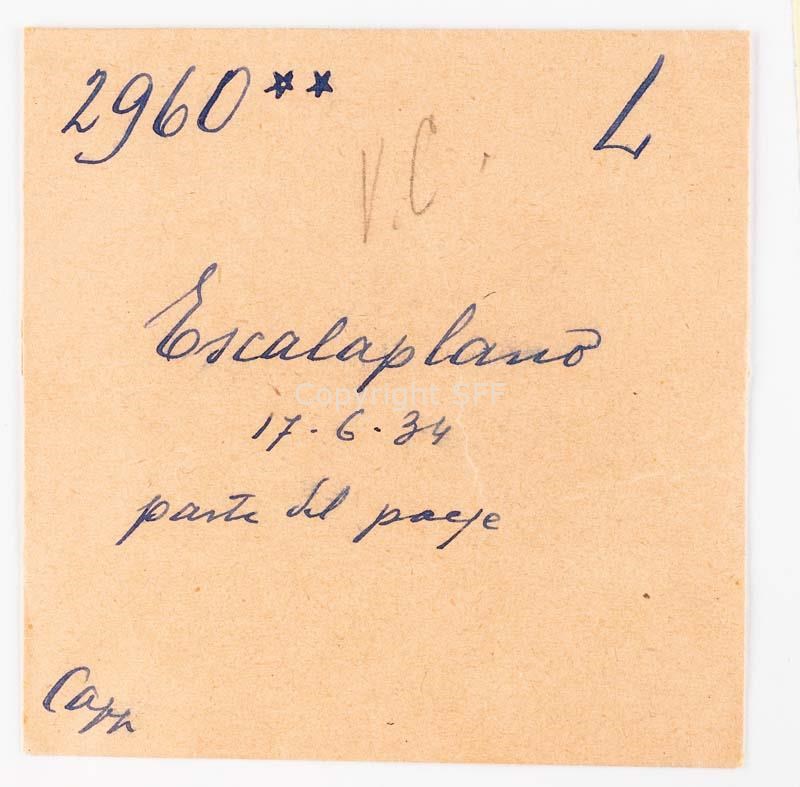 2960** L
V.C.
Escalaplano
Copyright SFF
17.6.34
parte del paese
Capp